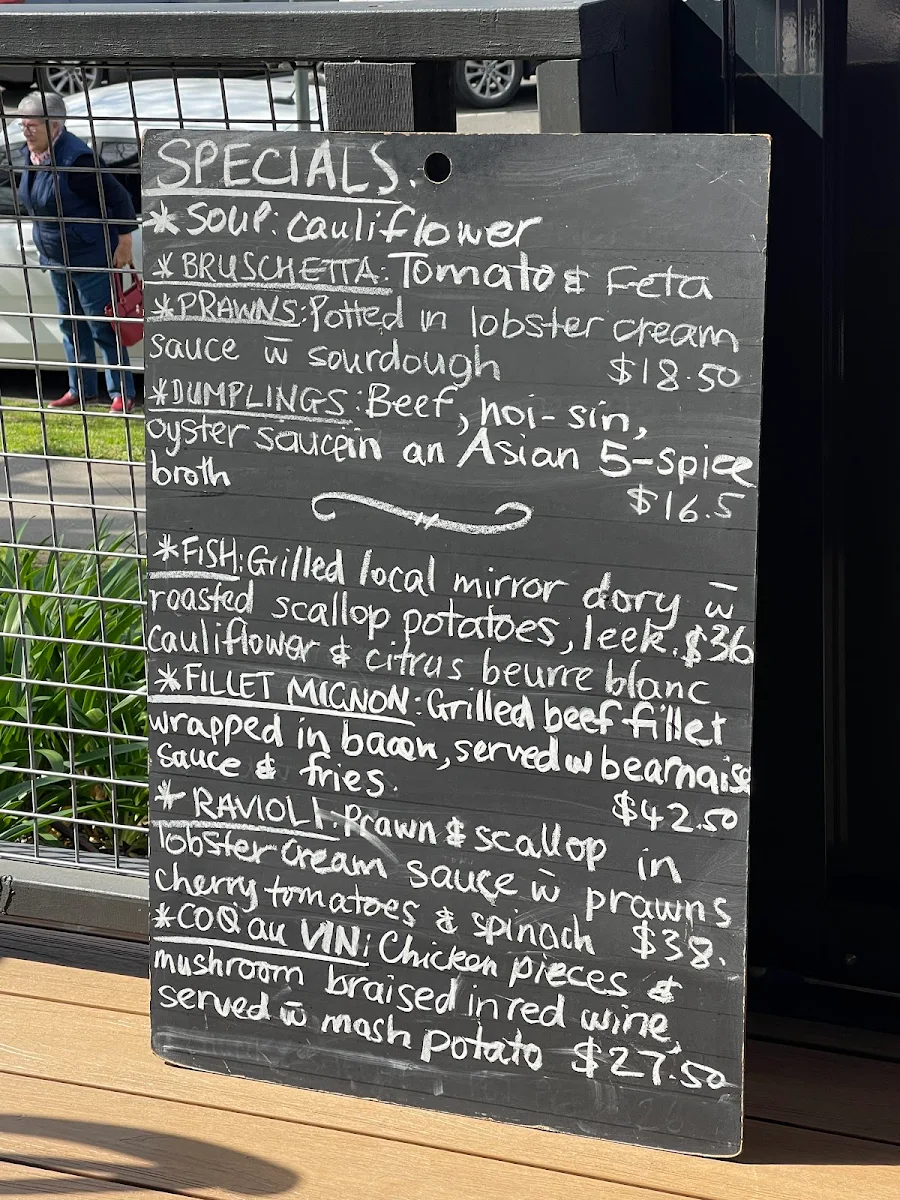 SPECIALS.
* SOUP: cauliflower
* BRUSCHETTA: Tomato & Feta
* PRAWNS: Potted in lobster cream
sauce w̄ sourdough $18.50
* DUMPLINGS: Beef, hoi-sin,
oyster sauce in an Asian 5-spice
broth $16.5
* FISH: Grilled local mirror dory w̄
roasted scallop potatoes, leek. $36
cauliflower & citrus beurre blanc
* FILLET MIGNON: Grilled beef fillet
wrapped in bacon, served w bearnaise
sauce & fries.
$42.50
* RAVIOLI: Prawn & scallop in
lobster cream sauce w̄ prawns
cherry tomatoes & spinach $38.
* COQ au VIN: Chicken pieces &
mushroom braised in red wine,
served w̄ mash potato $27.50